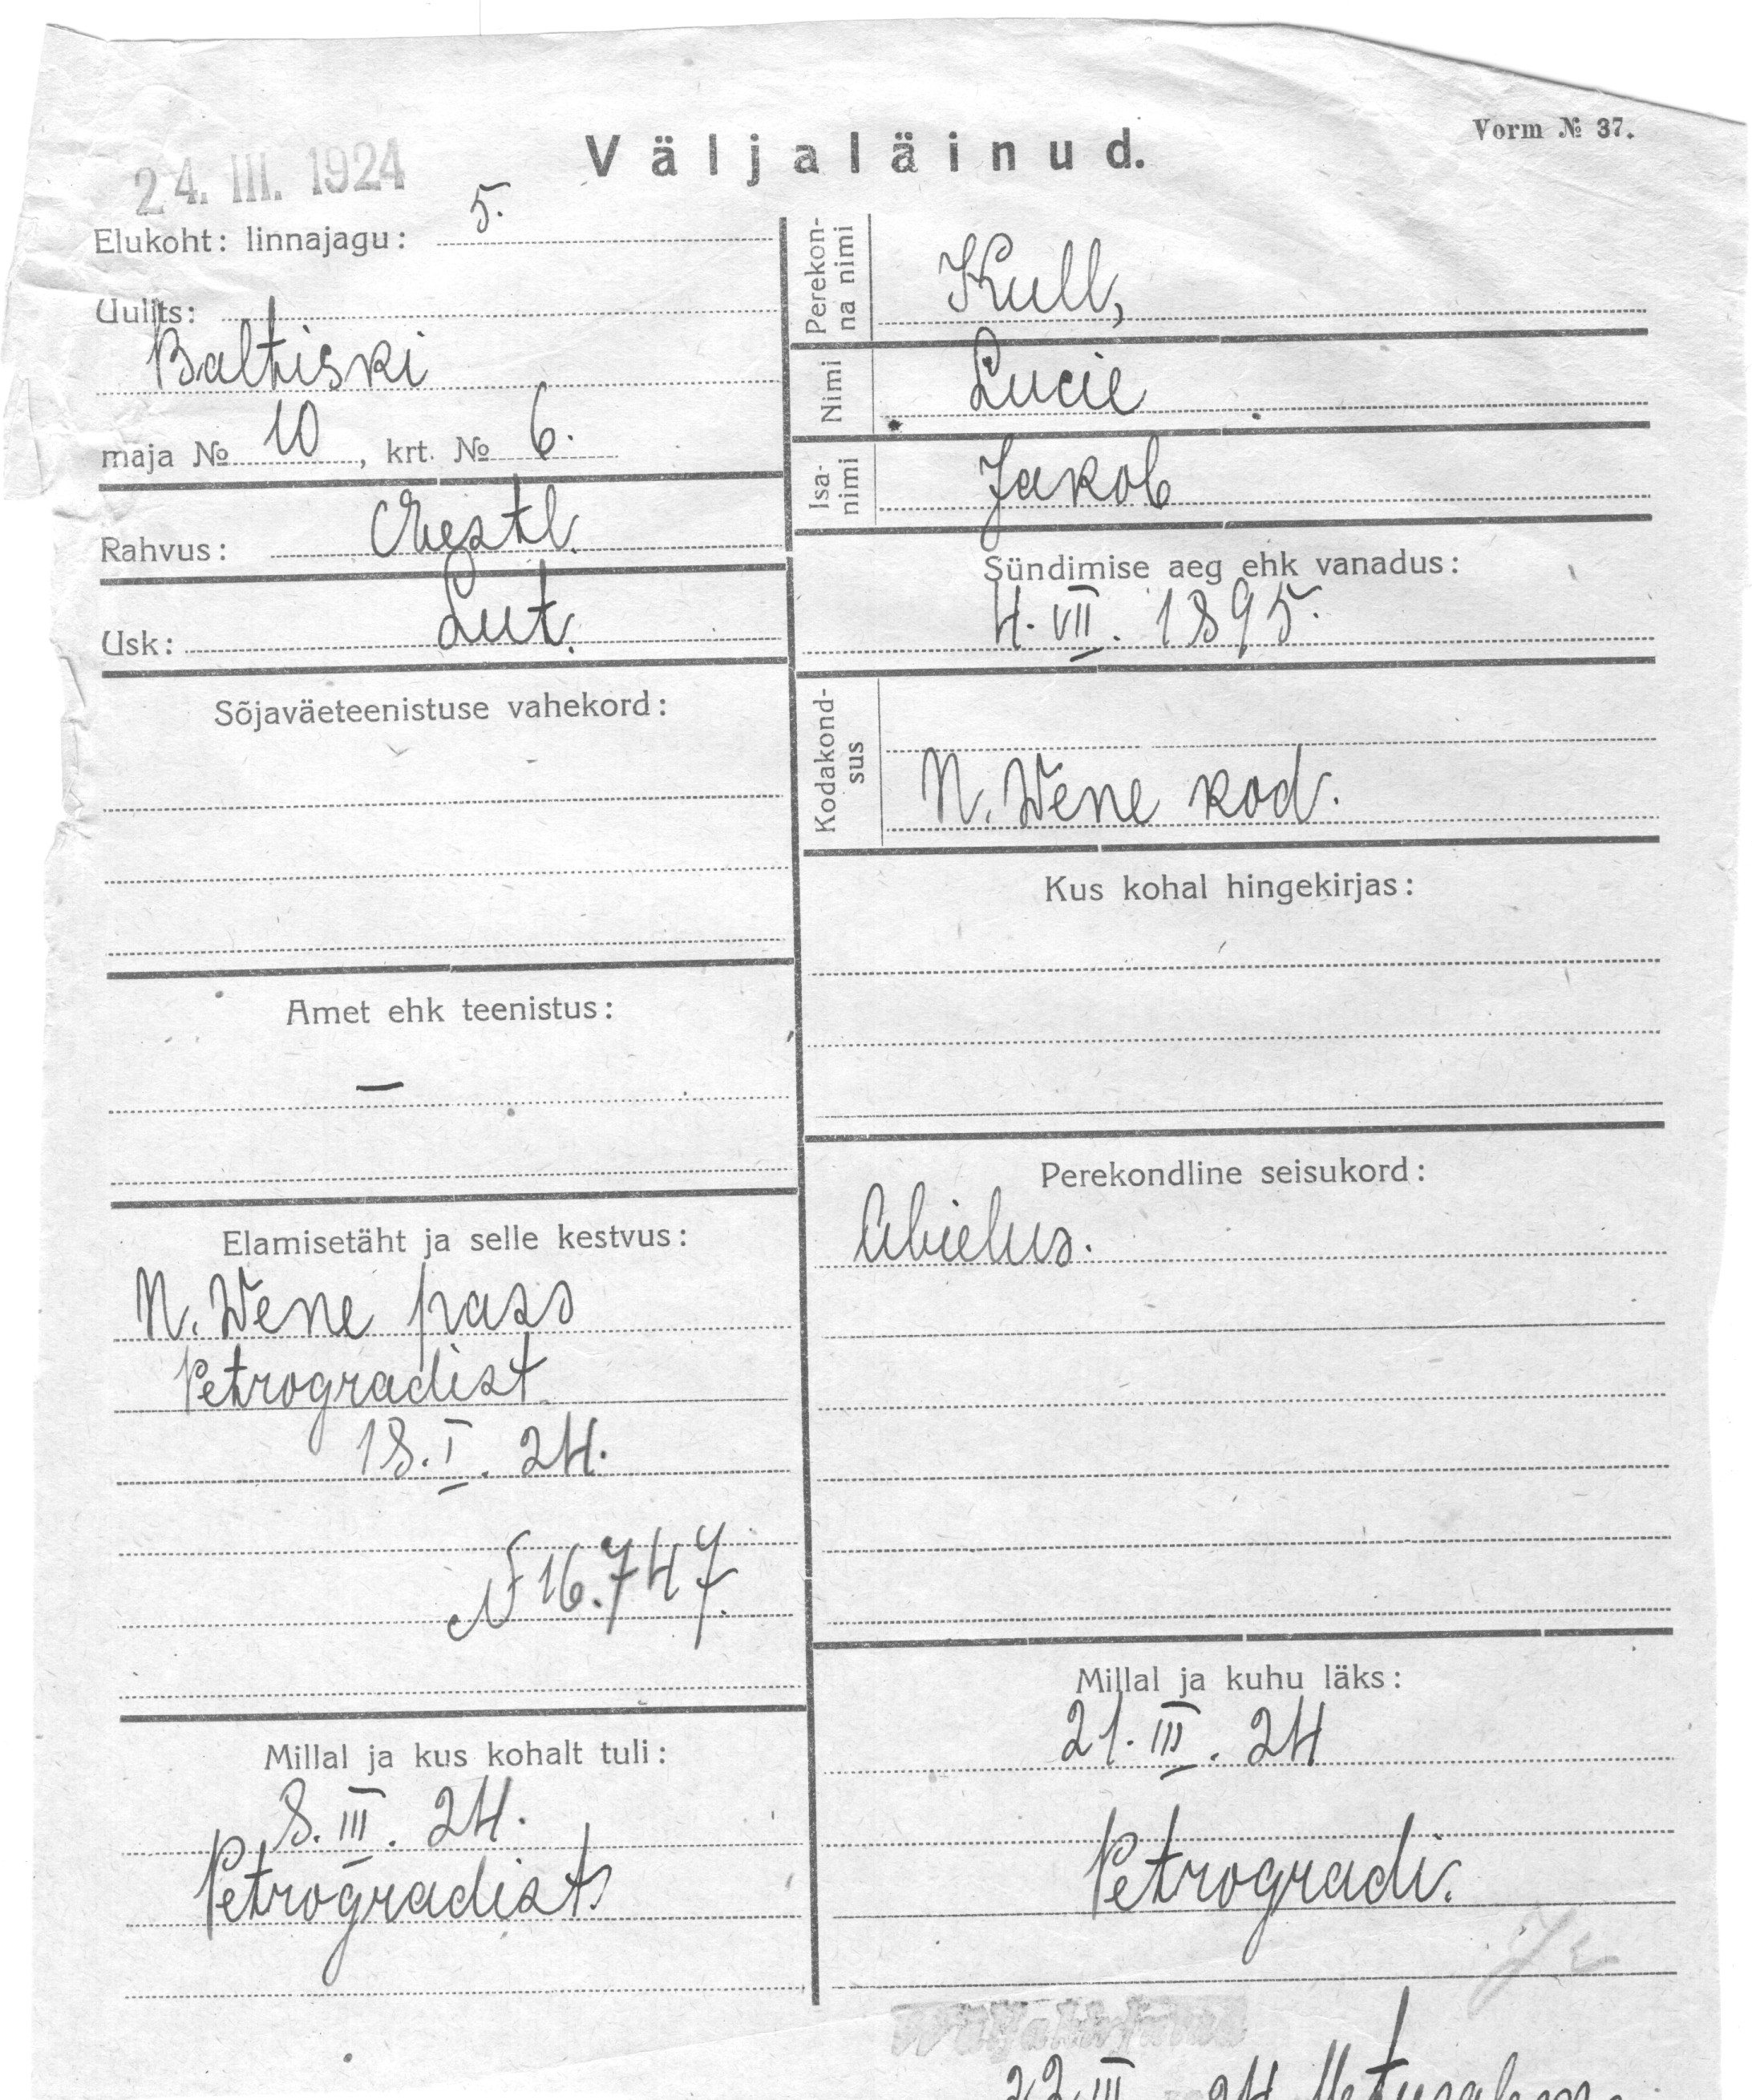 Vorm № 37.
Väljaläinud.
24. III. 1924
Elukoht: linnajagu: 5.
Uulits:
Baltiski
maja № 10, krt. № 6.
Rahvus: Eestl.
Usk: Lut.
Sõjaväeteenistuse vahekord:
Amet ehk teenistus:
—
Elamisetäht ja selle kestvus:
N. Wene pass
Petrogradist
18. I. 24.
№ 16.747.
Millal ja kus kohalt tuli:
8. III. 24.
Petrogradist
Perekon-
na nimi
Kull,
Nimi
Lucie
Isa-
nimi
Jakob
Sündimise aeg ehk vanadus:
4. VII. 1895.
Kodakond-
sus
N. Wene kod.
Kus kohal hingekirjas:
Perekondline seisukord:
Abielus.
Millal ja kuhu läks:
21. III. 24
Petrogradi.
22. III 24